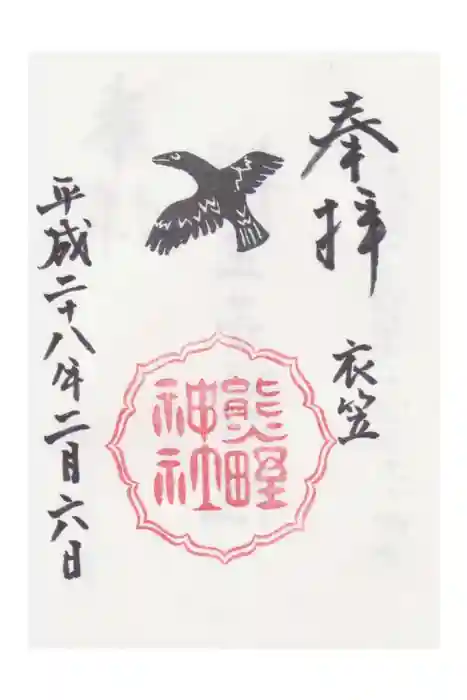 奉拝
衣笠
熊野
神社
平成二十八年二月六日